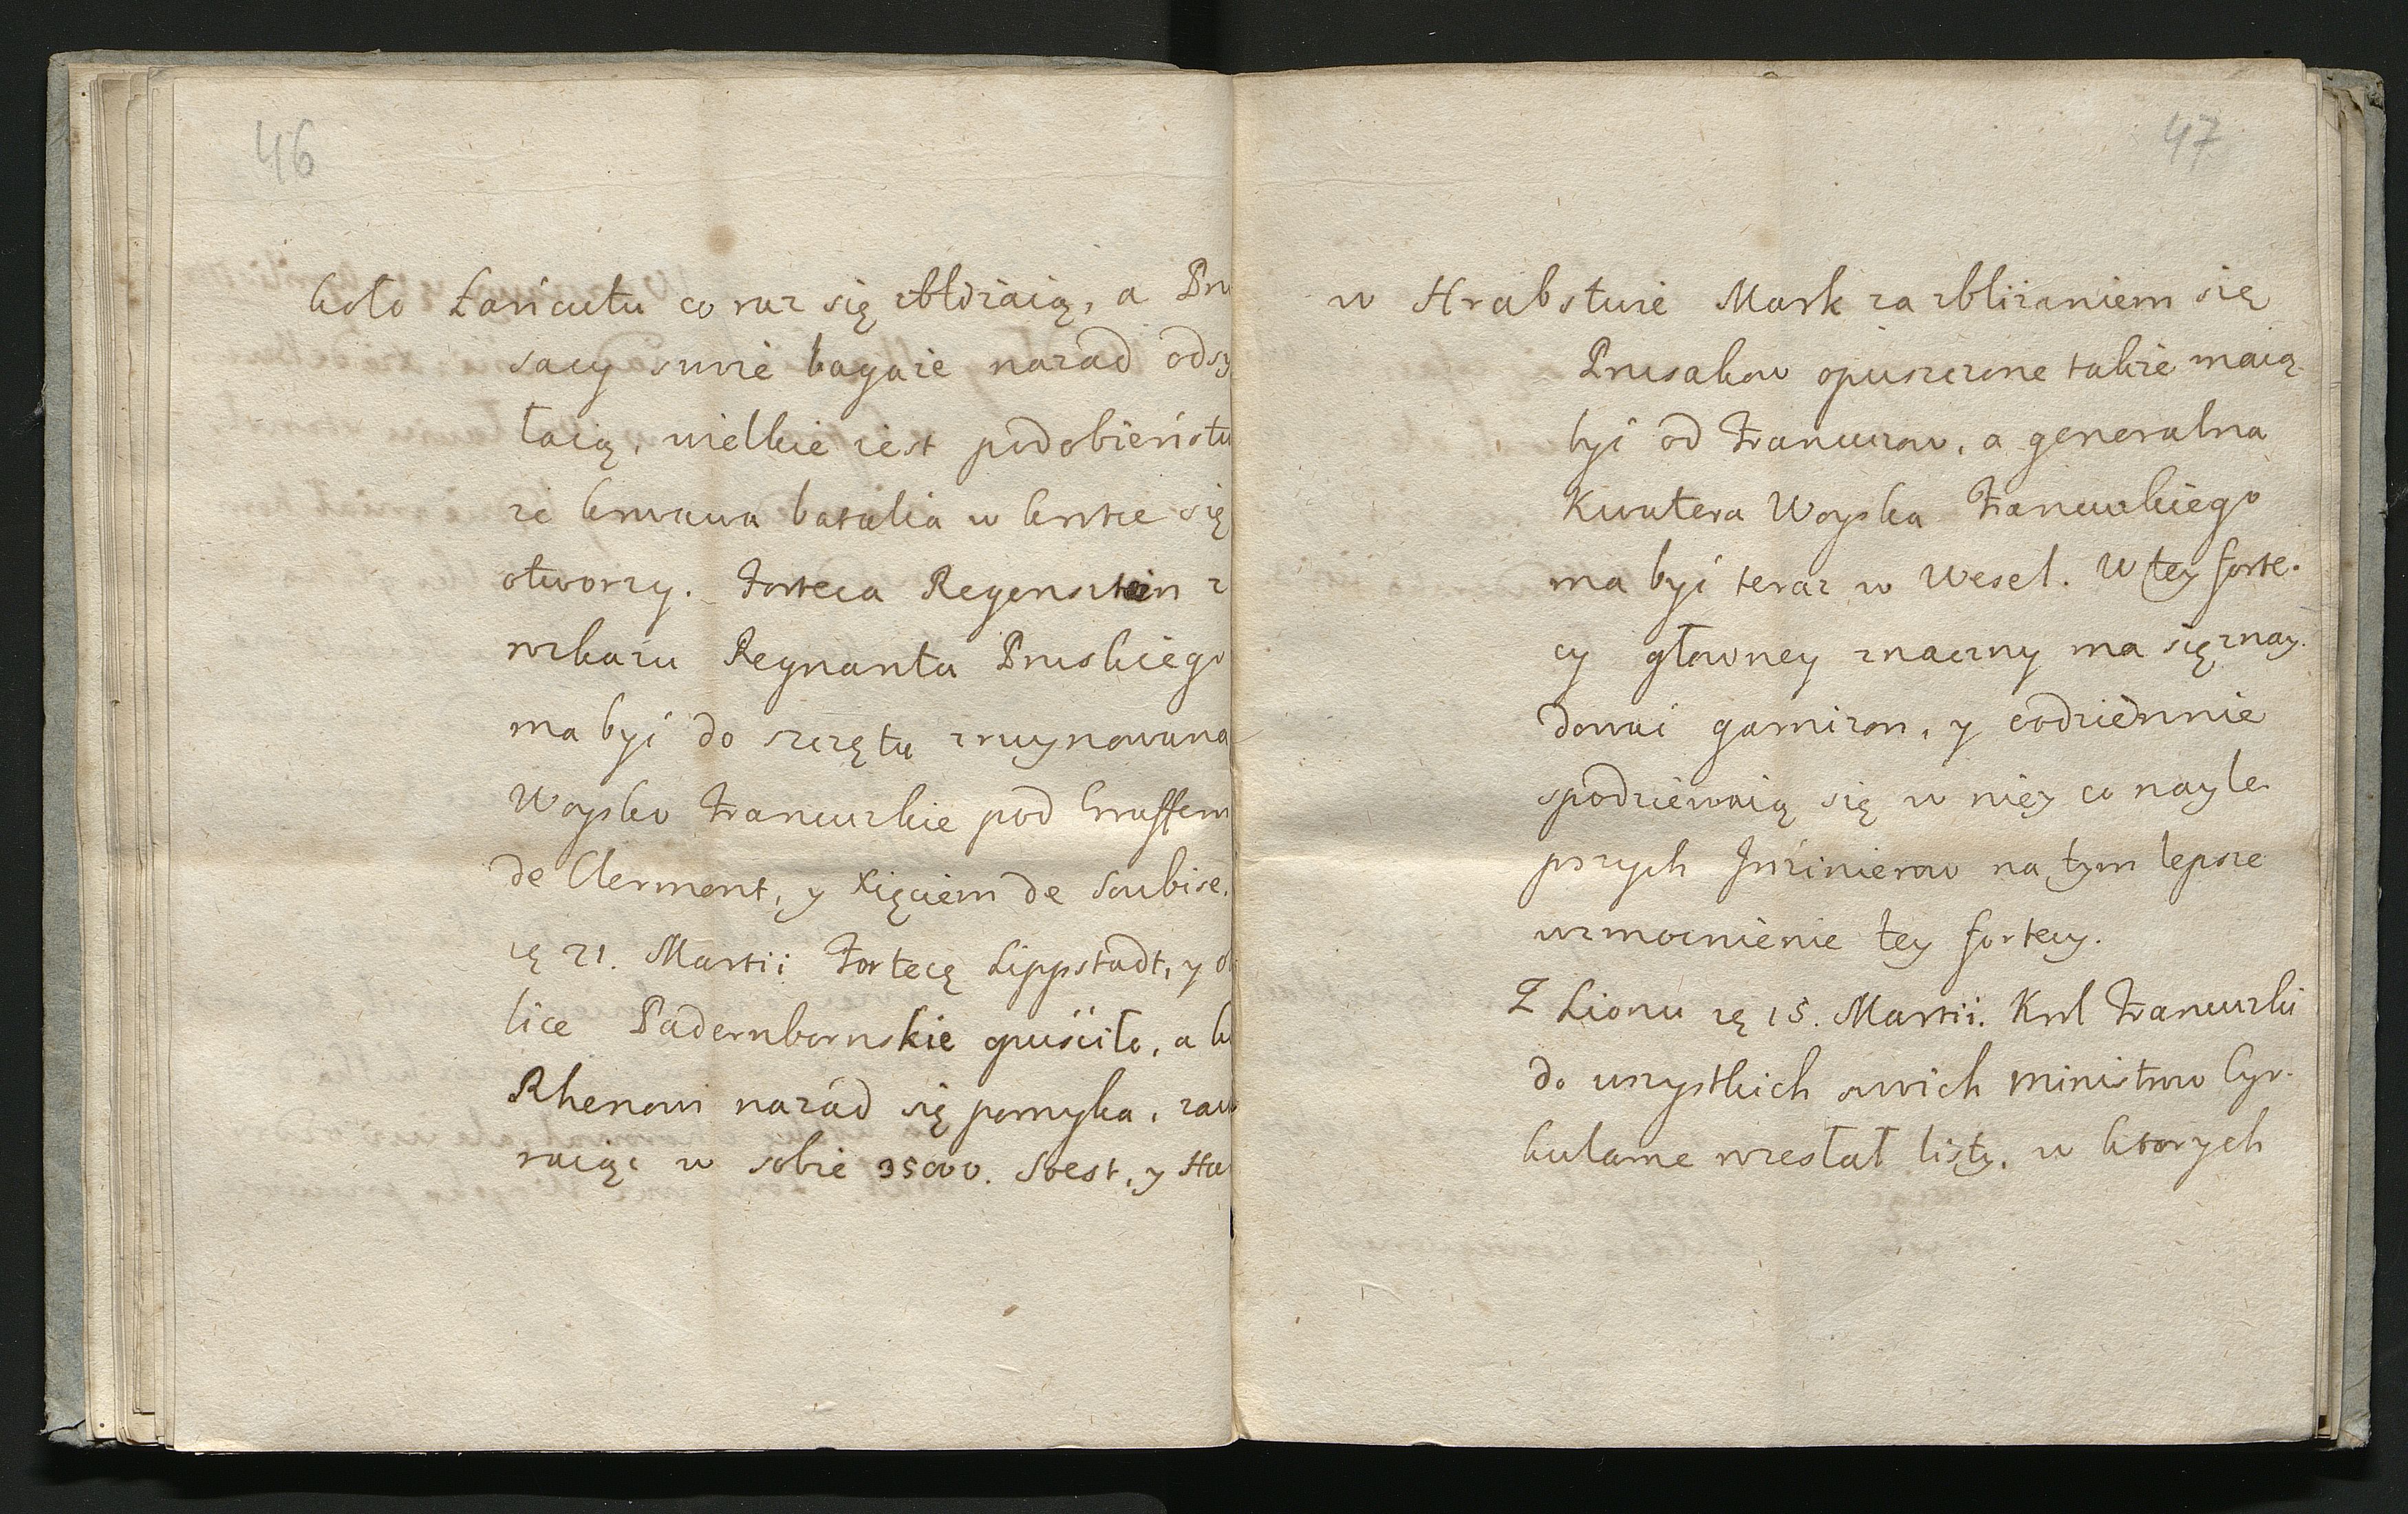 46
koło Łańcutu co raz się zbliżaią, a Pru
sacy swoie bagaże nazad odsy
łaią, wielkie iest podobieństw
że krwawa batalia w krotce się
otworzy. Forteca Regensztein z
rozkazu Regnanta Pruskiego
ma być do szczętu zruynowana
Woysko Francuzkie pod Graffem
de Clermont, y Xięciem de Soubise.
zę 21. Martii Fortecę Lippstadt, y o
lice Padernbornskie opuściło, a k
Rhenowi nazád się pomyka, zaw
raiąc w sobie 35000. Soest, y Ha
47
w Hrabstwie Mark za zbliżeniem się
Prusakow opuszczone także maią
być od Francuzow, a generalna
Kwatera Woyska Francuzkiego
ma być teraz w Wesel. W tey forte-
cy głowney znaczny ma się znay-
dować garnizon, y codziennie
spodziewaią się w niey co nayle-
pszych Jnżinierow na tym lepsze
wzmocnienie tey fortecy.
Z Lionu zę 15. Martii. Krol Francuzki
do wszystkich swoich ministrow Cyr-
kularne rozesłał listy, w ktorych